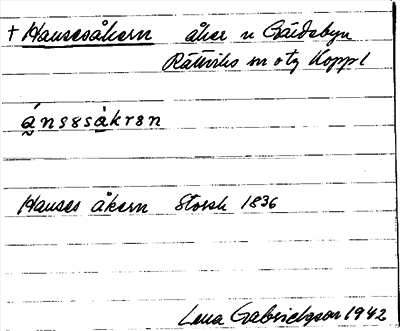 + Hansesåkern åker n Gärdsbyn
Rättviks sn o tg Koppl
á̰nsəsåkrən
Hanses åkern Storsk 1836
Lena Gabrielsson 1942